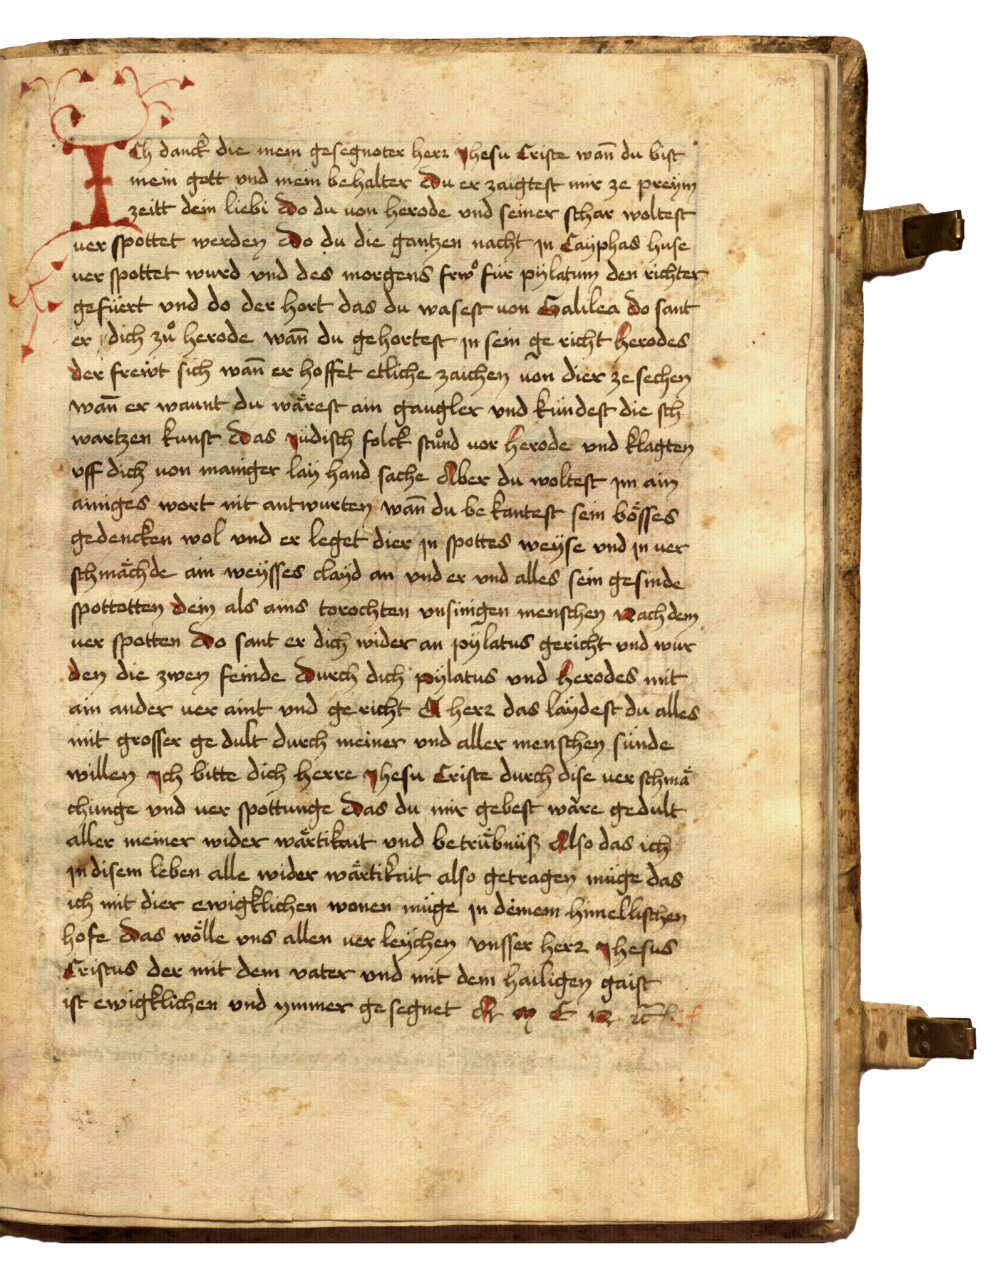 Ich danck die mein gesegnoter herr Jhesu Criste wann̄ du bist
mein gott vnd mein behalter Du er zaigtest mir ze preym
zeitt dein liebi Do du von herode vnd seiner schar woltest
ver spottet werden Do du die gantzen nacht jn Cayphas huse
ver spottet wurd vnd des morgens frwͦ für pÿlatum den richter
gefüert vnd do der hort das du wasest von Galilea do sant
er dich zuͦ herode wann̄ du gehortest jn sein ge richt Herodes
der frewt sich wann̄ er hoffet etliche zaichen von dier ze sechen
wann̄ er wannt du wärest ain gaugler vnd kündest die sch
wartzen kunst Das Jüdisch folck stuͦnd vor herode vnd klagten
vff dich von maniger lay hand sache Aber du woltest jm ain
ainiges wort nit antwurten wann̄ du be kantest sein bösses
gedencken wol vnd er leget dier jn spottes weÿse vnd jn ver
schmächde ain weÿsses clayd an vnd er vnd alles sein gesinde
spottotten dein als ains torochten vnsinigen menschen Nach dem
ver spotten Do sant er dich wider an pÿlatus gericht vnd wur
den die zwen feinde Durch dich pÿlatus vnd Herodes mit
ain ander ver aint vnd ge richt A herr das laÿdest du alles
mit grosser ge dult durch meiner vnd aller menschen sünde
willen Ich bitte dich herre Jhesu Criste durch dise ver schmä
chunge vnd ver spottunge Das du mir gebest wäre gedult
aller meiner wider wärtikait vnd betrübnüß Also das ich
jn disem leben alle wider wärtikait also getragen müge das
ich mit dier ewigklichen wonen müge jn deinem himellischen
hofe Das wölle vns allen ver leÿchen vnsser herr Jhesus
Cristus der mit dem vater vnd mit dem hailigen gaist
ist ewigklichen vnd ymmer gesegnet A M E N